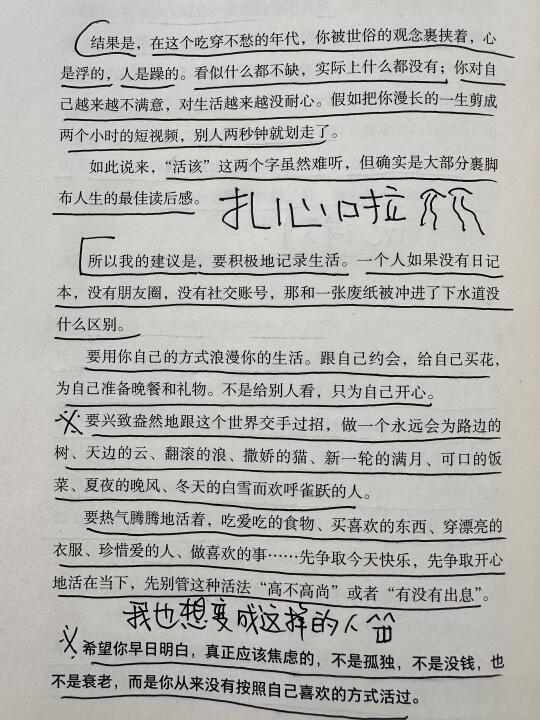 结果是，在这个吃穿不愁的年代，你被世俗的观念裹挟着，心
是浮的，人是躁的。看似什么都不缺，实际上什么都没有；你对自
己越来越不满意，对生活越来越没耐心。假如把你漫长的一生剪成
两个小时的短视频，别人两秒钟就划走了。
如此说来，“活该”这两个字虽然难听，但确实是大部分裹脚
布人生的最佳读后感。
扎心口拉
所以我的建议是，要积极地记录生活。一个人如果没有日记
本，没有朋友圈，没有社交账号，那和一张废纸被冲进了下水道没
什么区别。
要用你自己的方式浪漫你的生活。跟自己约会，给自己买花，
为自己准备晚餐和礼物。不是给别人看，只为自己开心。
※要兴致盎然地跟这个世界交手过招，做一个永远会为路边的
树、天边的云、翻滚的浪、撒娇的猫、新一轮的满月、可口的饭
菜、夏夜的晚风、冬天的白雪而欢呼雀跃的人。
要热气腾腾地活着，吃爱吃的食物、买喜欢的东西、穿漂亮的
衣服、珍惜爱的人、做喜欢的事……先争取今天快乐，先争取开心
地活在当下，先别管这种活法“高不高尚”或者“有没有出息”。
我也想变成这样的人
※希望你早日明白，真正应该焦虑的，不是孤独，不是没钱，也
不是衰老，而是你从来没有按照自己喜欢的方式活过。